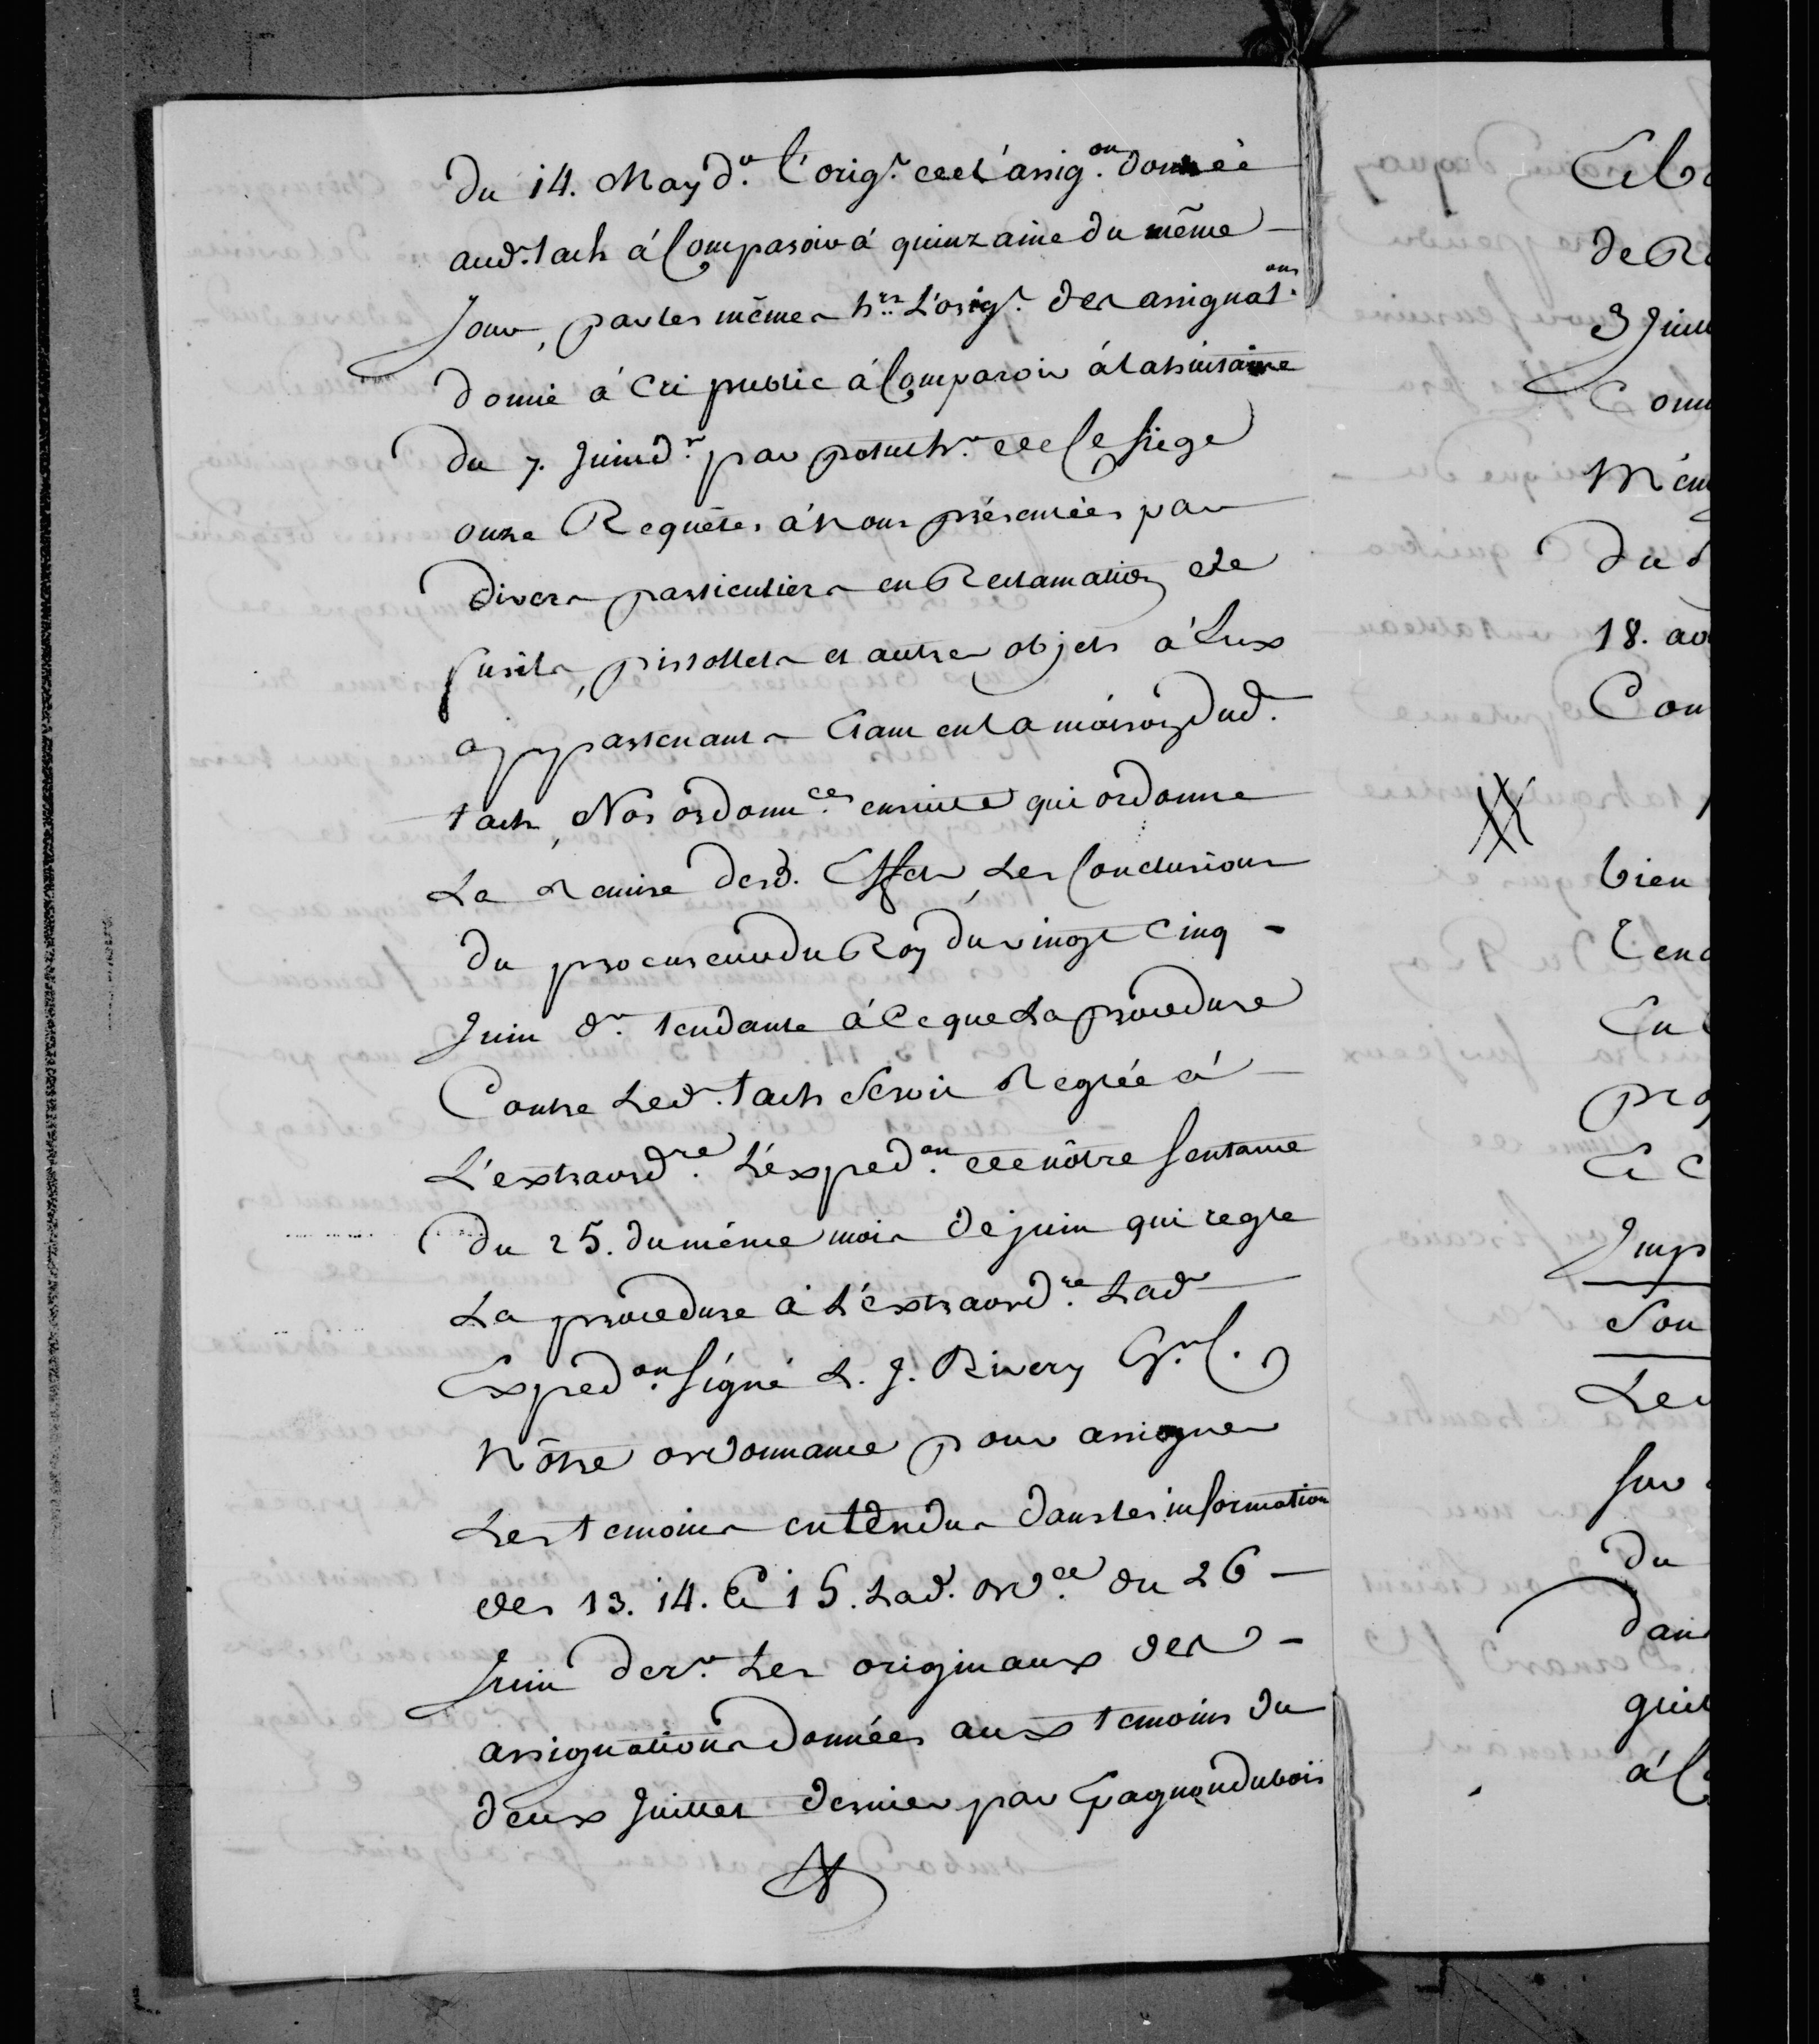 du 14. May d.r l'orig.l de l'assig.on donnée
aud.t tach à Comparoir à quinzaine du même
Jour, par les mêmes h.rs L'orig.l des assignat.ons
donné à Cri public à Comparoir à la huitaine
du 7. Juin d.r par h.r de Ce siege
onze Requêtes à Nous présentées par
divers particuliers en Reclamation de
fusils, pistollets et autres objets à Eux
appartenants Etant en la maison dud.
tach, Nos ordonn.ces ensuite qui ordonne
La Remise desd. Effets, Les Conclusions
du procureur du Roy du vingt Cinq
Juin d.r tendante à Ce que La procedure
Contre Led. tach seroit Reglée à
L'extraord.re L'exped.on de nôtre sentance
du 25. du même mois de juin qui regle
La procedure à L'extraord.re Lad.
Exped.on signé L. J. Rivery
Nôtre ordonnance pour assigner
Les temoins entendus dans les information
des 13. 14. Et 15. Lad. ord.ce du 26
Juin der.r Les originaux des
assignations données aux temoins du
deux Juillet dernier par Gagnon dubois
de
3 Juin
du
18.
Con
bien
En
Et
Imp
Son
sur
du
à